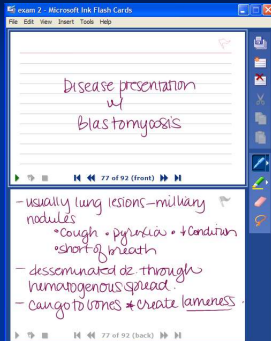 exam 2 - Microsoft Ink Flash Cards
File Edit View Insert Tools Help
Disease presentation
w/
Blastomycosis
77 of 92 (front)
- usually lung lesions - miliary
nodules
• Cough • pyrexia • ↓ Condition
• short of breath
- desseminated dz. through
hematogenous spread.
- can go to bones & create lameness.
77 of 92 (back)